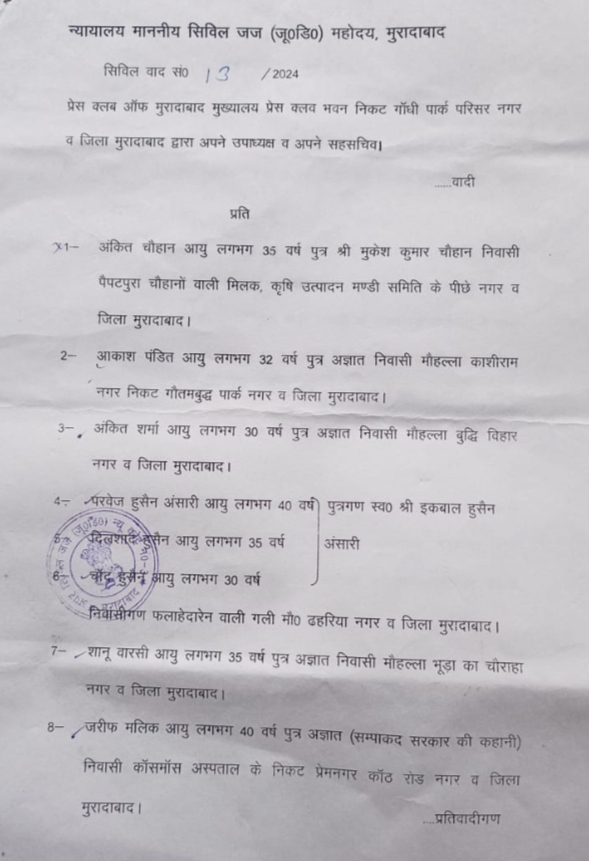 न्यायालय माननीय सिविल जज (जू0डि0) महोदय, मुरादाबाद
सिविल वाद सं0 13 /2024
प्रेस क्लब ऑफ मुरादाबाद मुख्यालय प्रेस क्लव भवन निकट गॉधी पार्क परिसर नगर
व जिला मुरादाबाद द्वारा अपने उपाध्यक्ष व अपने सहसचिव।
......वादी
प्रति
1– अंकित चौहान आयु लगभग 35 वर्ष पुत्र श्री मुकेश कुमार चौहान निवासी
पैपटपुरा चौहानों वाली मिलक, कृषि उत्पादन मण्डी समिति के पीछे नगर व
जिला मुरादाबाद।
2– आकाश पंडित आयु लगभग 32 वर्ष पुत्र अज्ञात निवासी मौहल्ला काशीराम
नगर निकट गौतमबुद्ध पार्क नगर व जिला मुरादाबाद।
3– अंकित शर्मा आयु लगभग 30 वर्ष पुत्र अज्ञात निवासी मौहल्ला बुद्धि विहार
नगर व जिला मुरादाबाद।
4– परवेज हुसैन अंसारी आयु लगभग 40 वर्ष पुत्रगण स्व0 श्री इकबाल हुसैन
5– दिलशाद हुसैन आयु लगभग 35 वर्ष अंसारी
6– चॉद हुसैन आयु लगभग 30 वर्ष
निवासीगण फलाहेदारेन वाली गली मौ0 ढहरिया नगर व जिला मुरादाबाद।
7– शानू वारसी आयु लगभग 35 वर्ष पुत्र अज्ञात निवासी मौहल्ला भूड़ा का चौराहा
नगर व जिला मुरादाबाद।
8– जरीफ मलिक आयु लगभग 40 वर्ष पुत्र अज्ञात (सम्पाकद सरकार की कहानी)
निवासी कॉसमॉस अस्पताल के निकट प्रेमनगर कॉठ रोड नगर व जिला
मुरादाबाद।
....प्रतिवादीगण